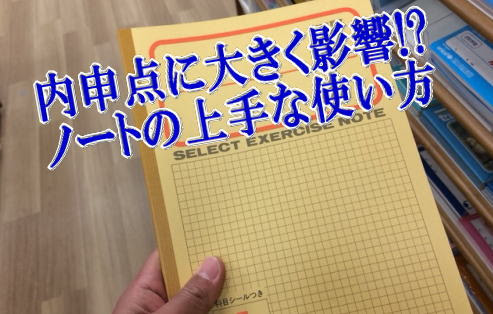 内申点に大きく影響!?
ノートの上手な使い方
SELECT EXERCISE NOTE
科目シールつき